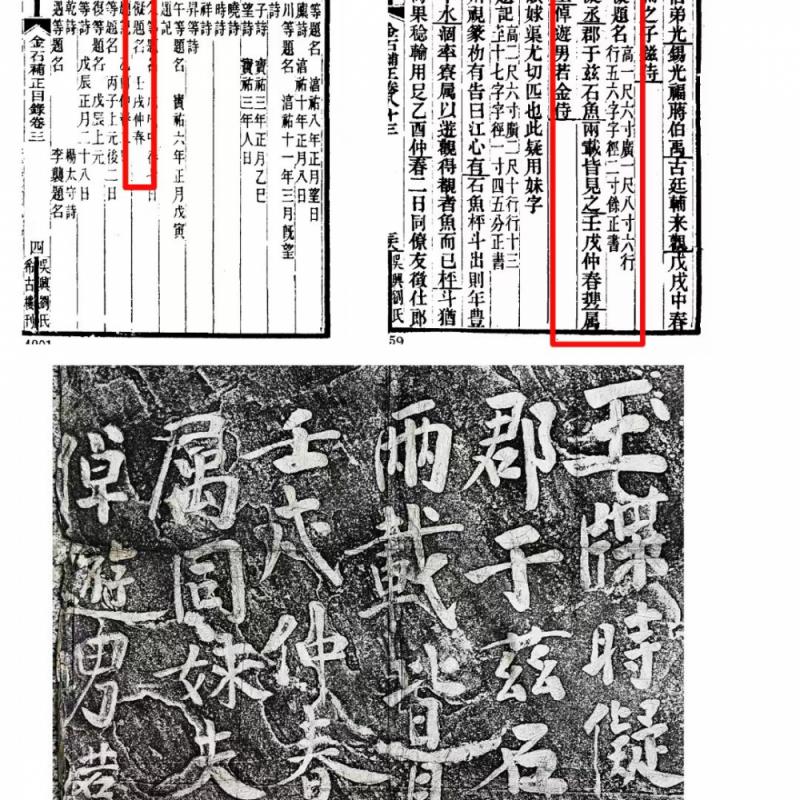 伯弟光錫光福蔣伯禹古廷輔來觀戊戌中春
之子滋侍
題名 高一尺六寸廣一尺八寸六行
行五六字字徑二寸餘正書
丞郡于兹石魚兩載皆見之壬戌仲春㩦屬
倬遊男若金侍
嫁渠尤切匹也此疑用妹字
題記 高二尺六寸廣二尺十行行十三
至十七字字徑一寸四五分正書
州視篆枌有告曰江心有石魚枰斗出則年豊
水涸率寮屬以遊觀得觀者魚而已枰斗猶
得果稔輸用足乙酉仲春二日同僚友徵仕郎
金石補正卷八十三
吳興劉氏
59
等題名 淳祐八年正月望日
鳳詩 淳祐十年正月八日
川等題名 淳祐十一年三月旣望
詩
望詩 寶祐三年正月乙巳
子詩 寶祐三年人日
曉詩
時詩
祥詩
昇等詩
午等題名 寶祐六年正月戊寅
題記
等題名
儗題名 壬戌仲春
等題名 丙子上元後二日
復等題名 戊辰上元
等詩 戊辰正月二十八日
乾詩 楊太守詩
遇等題名 李襲題名
金石補正目錄卷三
四
吳興劉氏希古樓刊
4801
玉牒時儗
郡于茲石
兩載皆見
壬戌仲春
屬同妹夫
倬遊男若